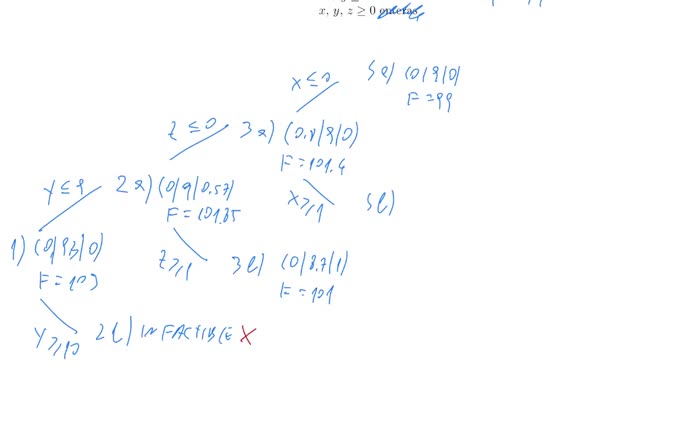 x, y, z ≥ 0 enteras
x ≤ 0
5a) (0/9/0)
F = 99
z ≤ 0
3a) (0.8/9/0)
F = 101.4
y ≤ 9
2a) (0/9/0.57)
F = 101.85
x ≥ 1
5b)
1) (0/9.3/0)
F = 103
z ≥ 1
3b) (0/8.7/1)
F = 101
y ≥ 10
2b) INFACTIBLE X